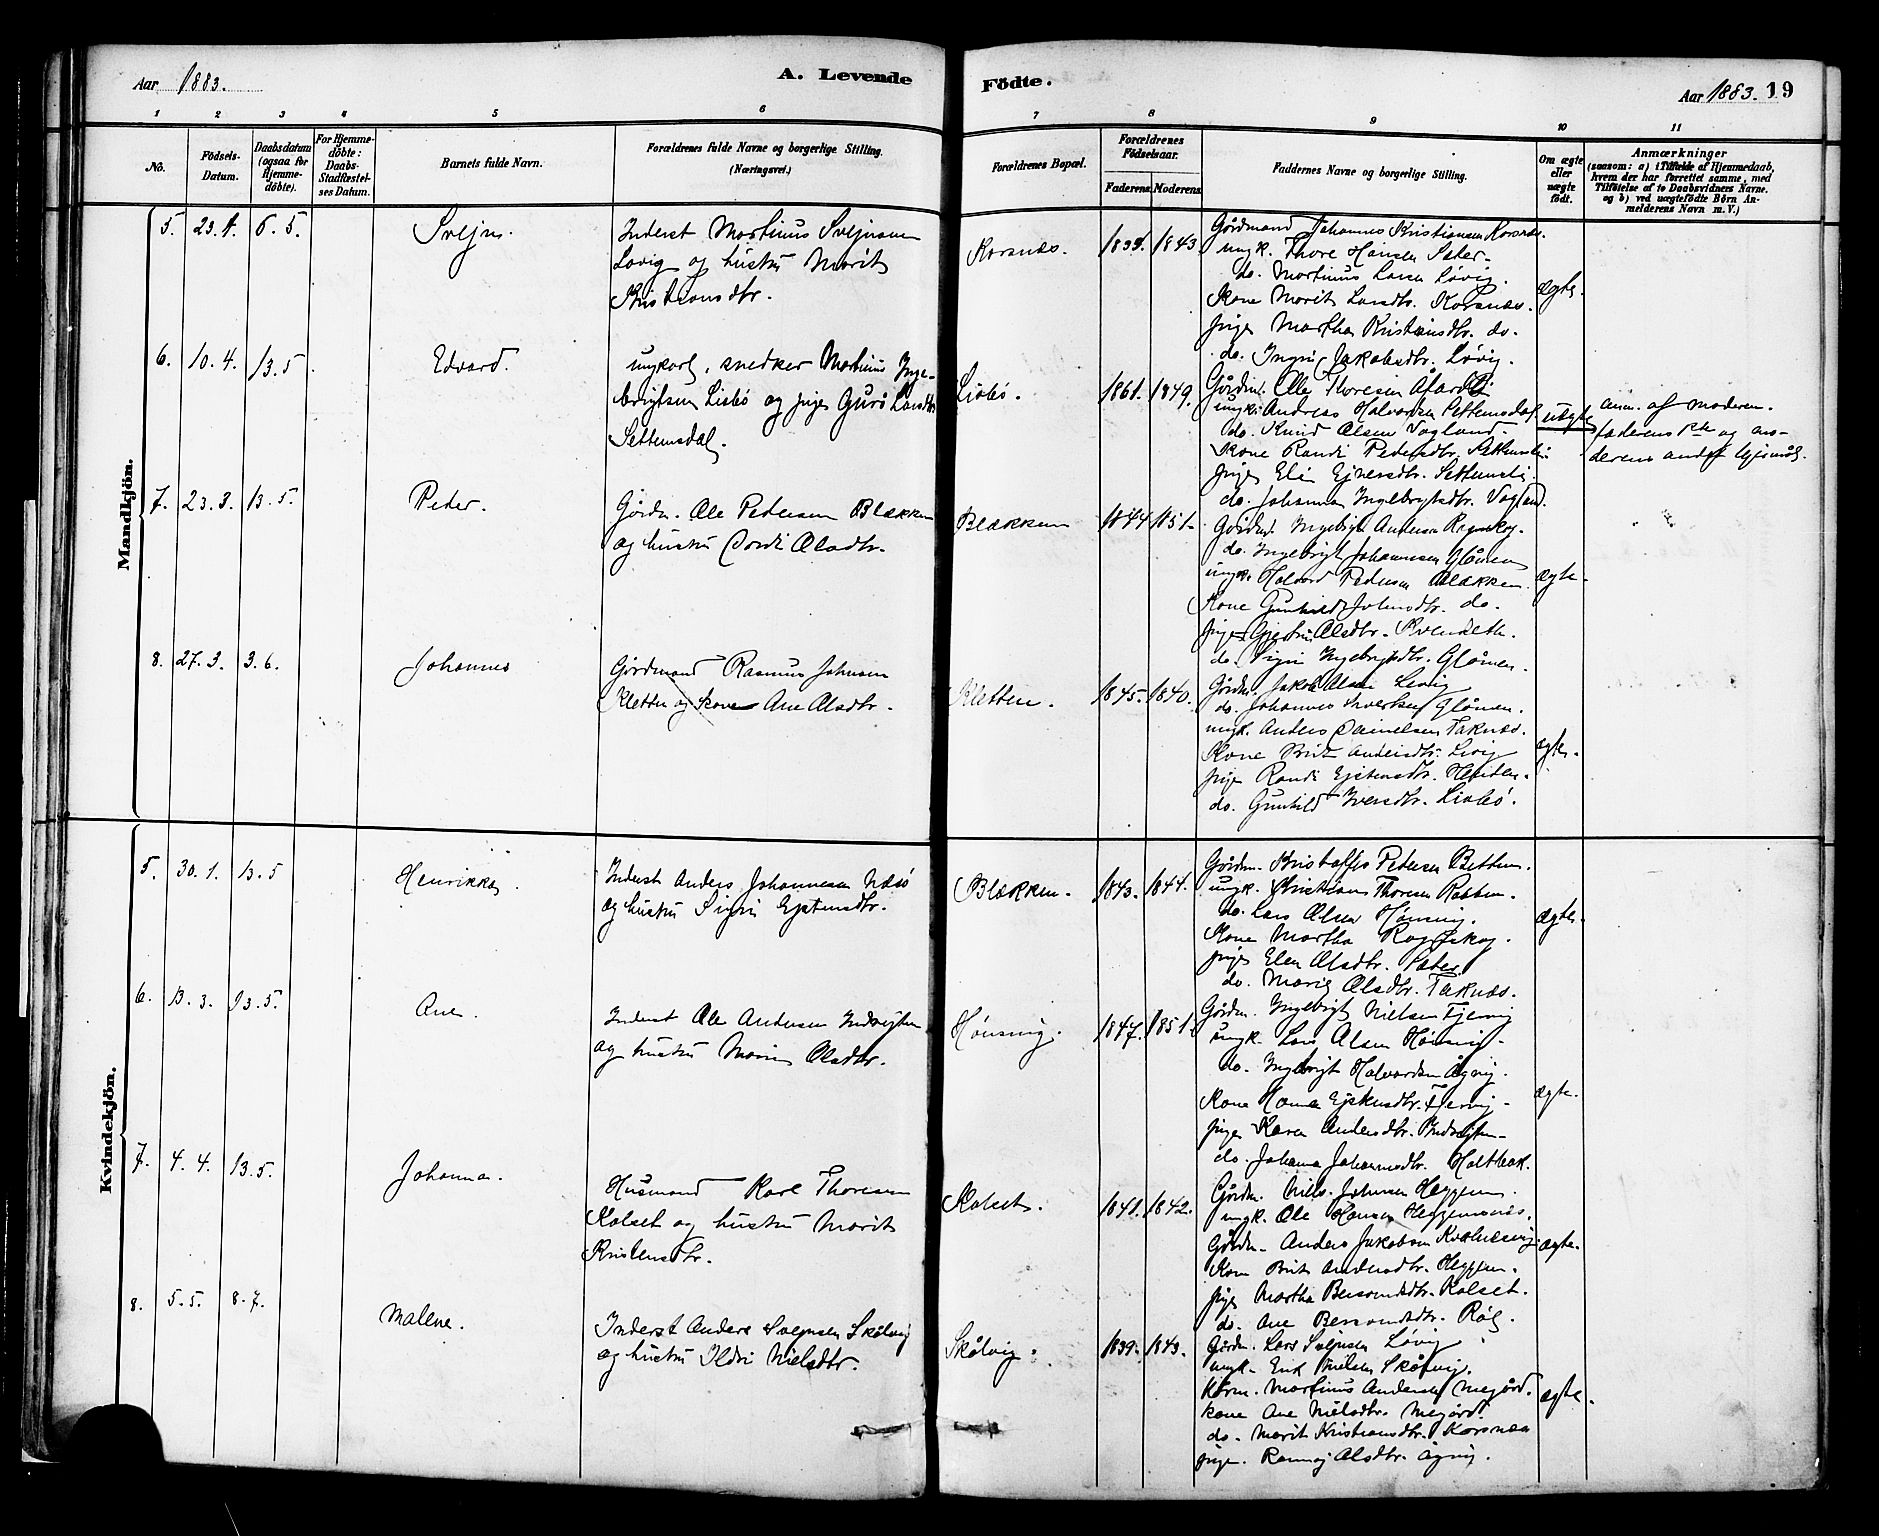 Aar 1883.
A. Levende
Födte.
Aar 1883. 19
1 2 3 4 5 6 7 8 9 10 11
No.
Födsels-
Datum.
Daabsdatum
(ogsaa for
Hjemme-
döbte).
For Hjemme-
döbte:
Daabs-
Stadfæstel-
ses Datum.
Barnets fulde Navn.
Forældrenes fulde Navne og borgerlige Stilling.
(Næringsvei.)
Forældrenes Bopæl.
Forældrenes
Födselsaar.
Faderens. Moderens.
Faddernes Navne og borgerlige Stilling.
Om ægte
eller
uægte
födt.
Anmærkninger
(saasom: a) i Tilfælde af Hjemmedaab,
hvem der har forrettet samme, med
Tilföielse af to Daabsvidners Navne.
og b) ved uægtefödte Börn An-
melderens Navn m. V.)
Mandkjön.
5. 23.4. 6.5. Svejn.
Inderst Martinus Svejnsen
Løvig og hustru Marit
Kristiansdtr.
Korsnæs. 1843
Gårdmand Johannes Kristiansen Korsnæs.
ungk. Thore Hansen Sæter.
do. Martinus Larsen Løvig.
Kone Marit Larsdtr. Korsnæs.
pige Martha Kristiansdtr. do.
do. Ingri Jakobsdtr. Løvig.
ægte.
6. 10.4. 13.5 Edvard.
ungkarl, snedker Martinus Inge-
brigtsen Lisbø og pige Guri Larsdtr
Settemsdal.
Lisbø. 1861. 1849.
Gårdm. Ole Thoresen
ungk. Andreas Halvorsen Settemsdal.
do. Knud Olsen Vagland
Kone Randi Pedersdtr. Settemsli.
pige Eli Ejnersdtr. Settemsli.
do. Johanna Ingebrigtsdtr. Vagland.
uægte
anm. af moderen.
faderens 1ste og mo-
derens andet lejermål.
7. 23.3. 13.5. Peder.
Gårdm. Ole Pedersen Blækken
og hustru Olsdtr.
Blækken 1844 1851.
Gårdmd. Ingebrigt Andersen
do. Ingebrigt Johannesen Glåmen
ungk. Halvard Pedersen Blækken.
Kone Gunhild Johnsdtr. do.
pige Gjertru Olsdtr. Kvendeth.
do. Sigri Ingebrigtsdtr. Glåmen.
ægte.
8. 27.3. 3.6. Johannes
Gårdmand Rasmus Johnsen
Kletten og Kone Ane Olsdtr.
Kletten. 1845. 1840.
Gårdm. Jakob Olsen Løvig
do. Johannes Glåmen.
ungk. Anders Danielsen Taknæs.
Kone Brit Andersdtr. Løvig
pige Randi Ejstensdtr.
do. Gunhild Iversdtr. Lisbø.
ægte.
Kvindekjön.
5. 30.1. 13.5 Henrikka.
Inderst Anders Johannesen
og hustru Sigri Ejstensdtr.
Blækken. 1843. 1844.
Gårdm. Kristoffer Pedersen Betten.
ungk. Kristian Thoresen
do. Lars Olsen Hønsvig.
Kone Martha
pige Elen Olsdtr. Sæter.
do. Marie Olsdtr. Taknæs.
ægte.
6. 13.3. 13.5. Ane.
Inderst Ole Andersen
og hustru Olsdtr.
Hønsvig. 1847. 1851.
Gårdm. Ingebrigt Nielsen Fjervig
ungk. Lars Olsen Hønsvig.
do. Ingebrigt Halvardsen Ågvig.
Kone Ejstensdtr. Fjervig.
pige Karen Andersdtr.
do. Johanna Johannesdtr. Holtbak.
ægte.
7. 4.4. 13.5. Johanna.
Husmand Karl Thoresen
Kalset og hustru Marit
Kristensdtr.
Kalset. 1841. 1842.
Gårdm. Niels Johnsen Heggem.
ungk. Ole Hansen
Gårdm. Anders Jakobsen
Kone Brit Andersdtr. Heggem.
pige Martha Kalset.
do. Ane
ægte.
8. 5.5. 8.7. Malene.
Inderst Anders Svejnsen Skålvig
og hustru Ildri Nielsdtr.
Skålvig. 1839. 1843.
Gårdm. Lars Svejnsen Løvig
ungk. Erik Nielsen Skålvig.
Martinus Andersen Megård.
kone Ane Nielsdtr. Megård.
do. Marit Kristiansdtr. Korsnæs
pige Olsdtr. Ågvig.
ægte.